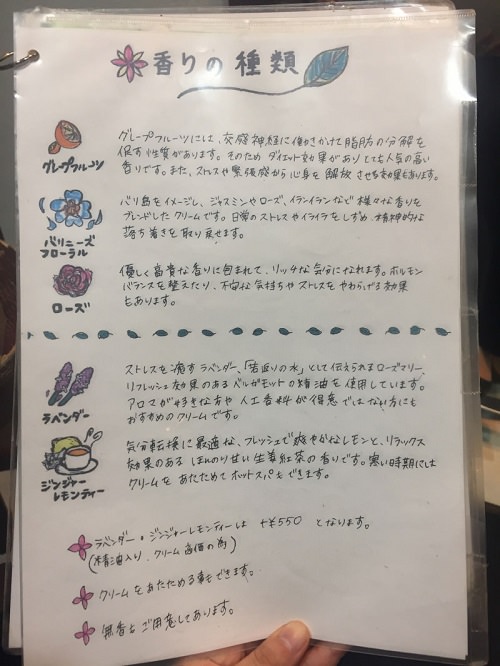 香りの種類
グレープフルーツ
グレープフルーツには、交感神経に働きかけて脂肪の分解を
促す性質があります。そのため ダイエット効果がありとても人気の高い
香りです。また、ストレスや緊張感から心身を解放させる効果もあります。
バリニーズ
フローラル
バリ島をイメージし、ジャスミンやローズ、イランイランなど様々な香りを
ブレンドしたクリームです。日常のストレスやイライラをしずめ、精神的な
落ち着きを取り戻せます。
ローズ
優しく高貴な香りに包まれて、リッチな気分になれます。ホルモン
バランスを整えたり、不安な気持ちやストレスをやわらげる効果
もあります。
ラベンダー
ストレスを癒すラベンダー、「若返りの水」として伝えられるローズマリー、
リフレッシュ効果のあるベルガモットの精油を使用しています。
アロマが好きな方や人工香料が得意ではない方にも
おすすめのクリームです。
ジンジャー
レモンティー
気分転換に最適な、フレッシュで爽やかなレモンと、リラックス
効果のある ほんのり甘い生姜紅茶の香りです。寒い時期には
クリームをあたためてホットスパもできます。
ラベンダー・ジンジャーレモンティーは +¥550 となります。
(精油入り、クリーム高価の為)
クリームをあたためる事もできます。
無香もご用意してあります。